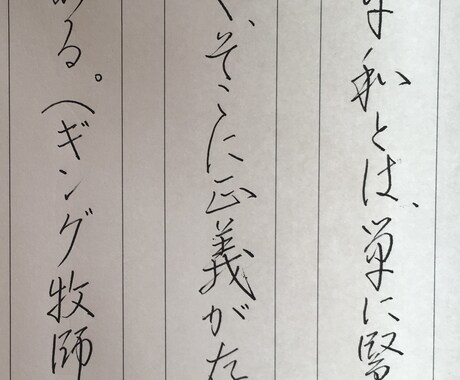 和とは、単に
、そこに正義が
ある。(ギング牧師